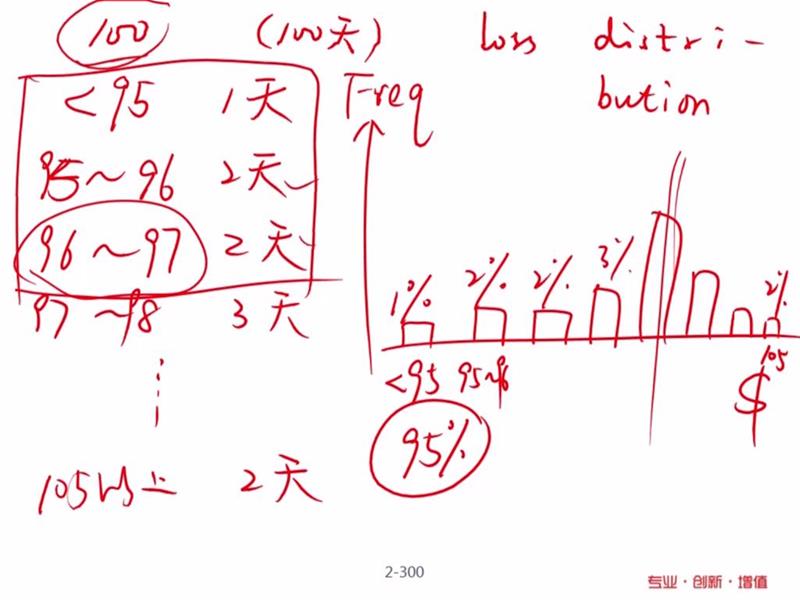 100 (100天) loss distri-
bution
<95 1天
95~96 2天
96~97 2天
97~98 3天
105以上 2天
Freq
1% 2% 2% 3% 2%
<95 95~96 105
$
95%
2-300
专业·创新·增值